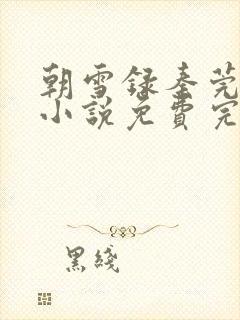 朝雪録秦莞
小說免費完
黑綫